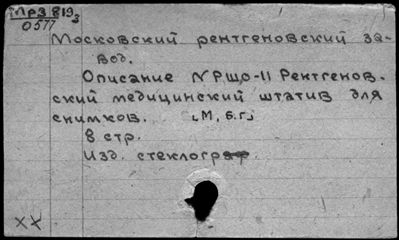 Мрз 819з
0577
Московский рентгеновский за-
вод.
Описание №РЩО-II Рентгенов-
ский медицинский штатив для
снимков. [М, б.г.]
8 стр.
Изд. стеклогр.
XX